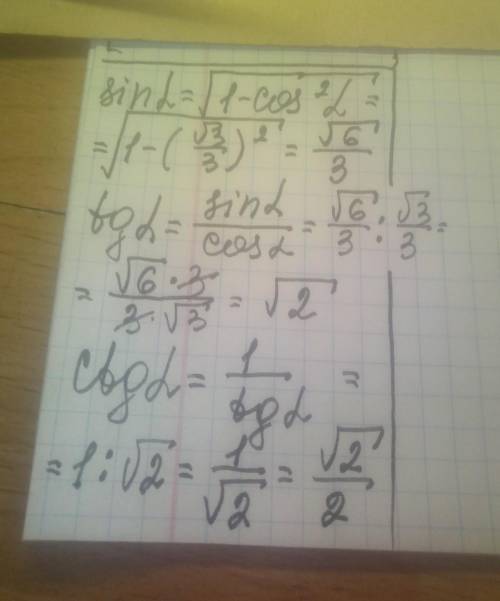 sinα = √(1 - cos²α) =
= √(1 - (√3/3)²) = √6/3
tgα = sinα/cosα = √6/3 : √3/3 =
= (√6 · 3)/(3 · √3) = √2
ctgα = 1/tgα =
= 1 : √2 = 1/√2 = √2/2